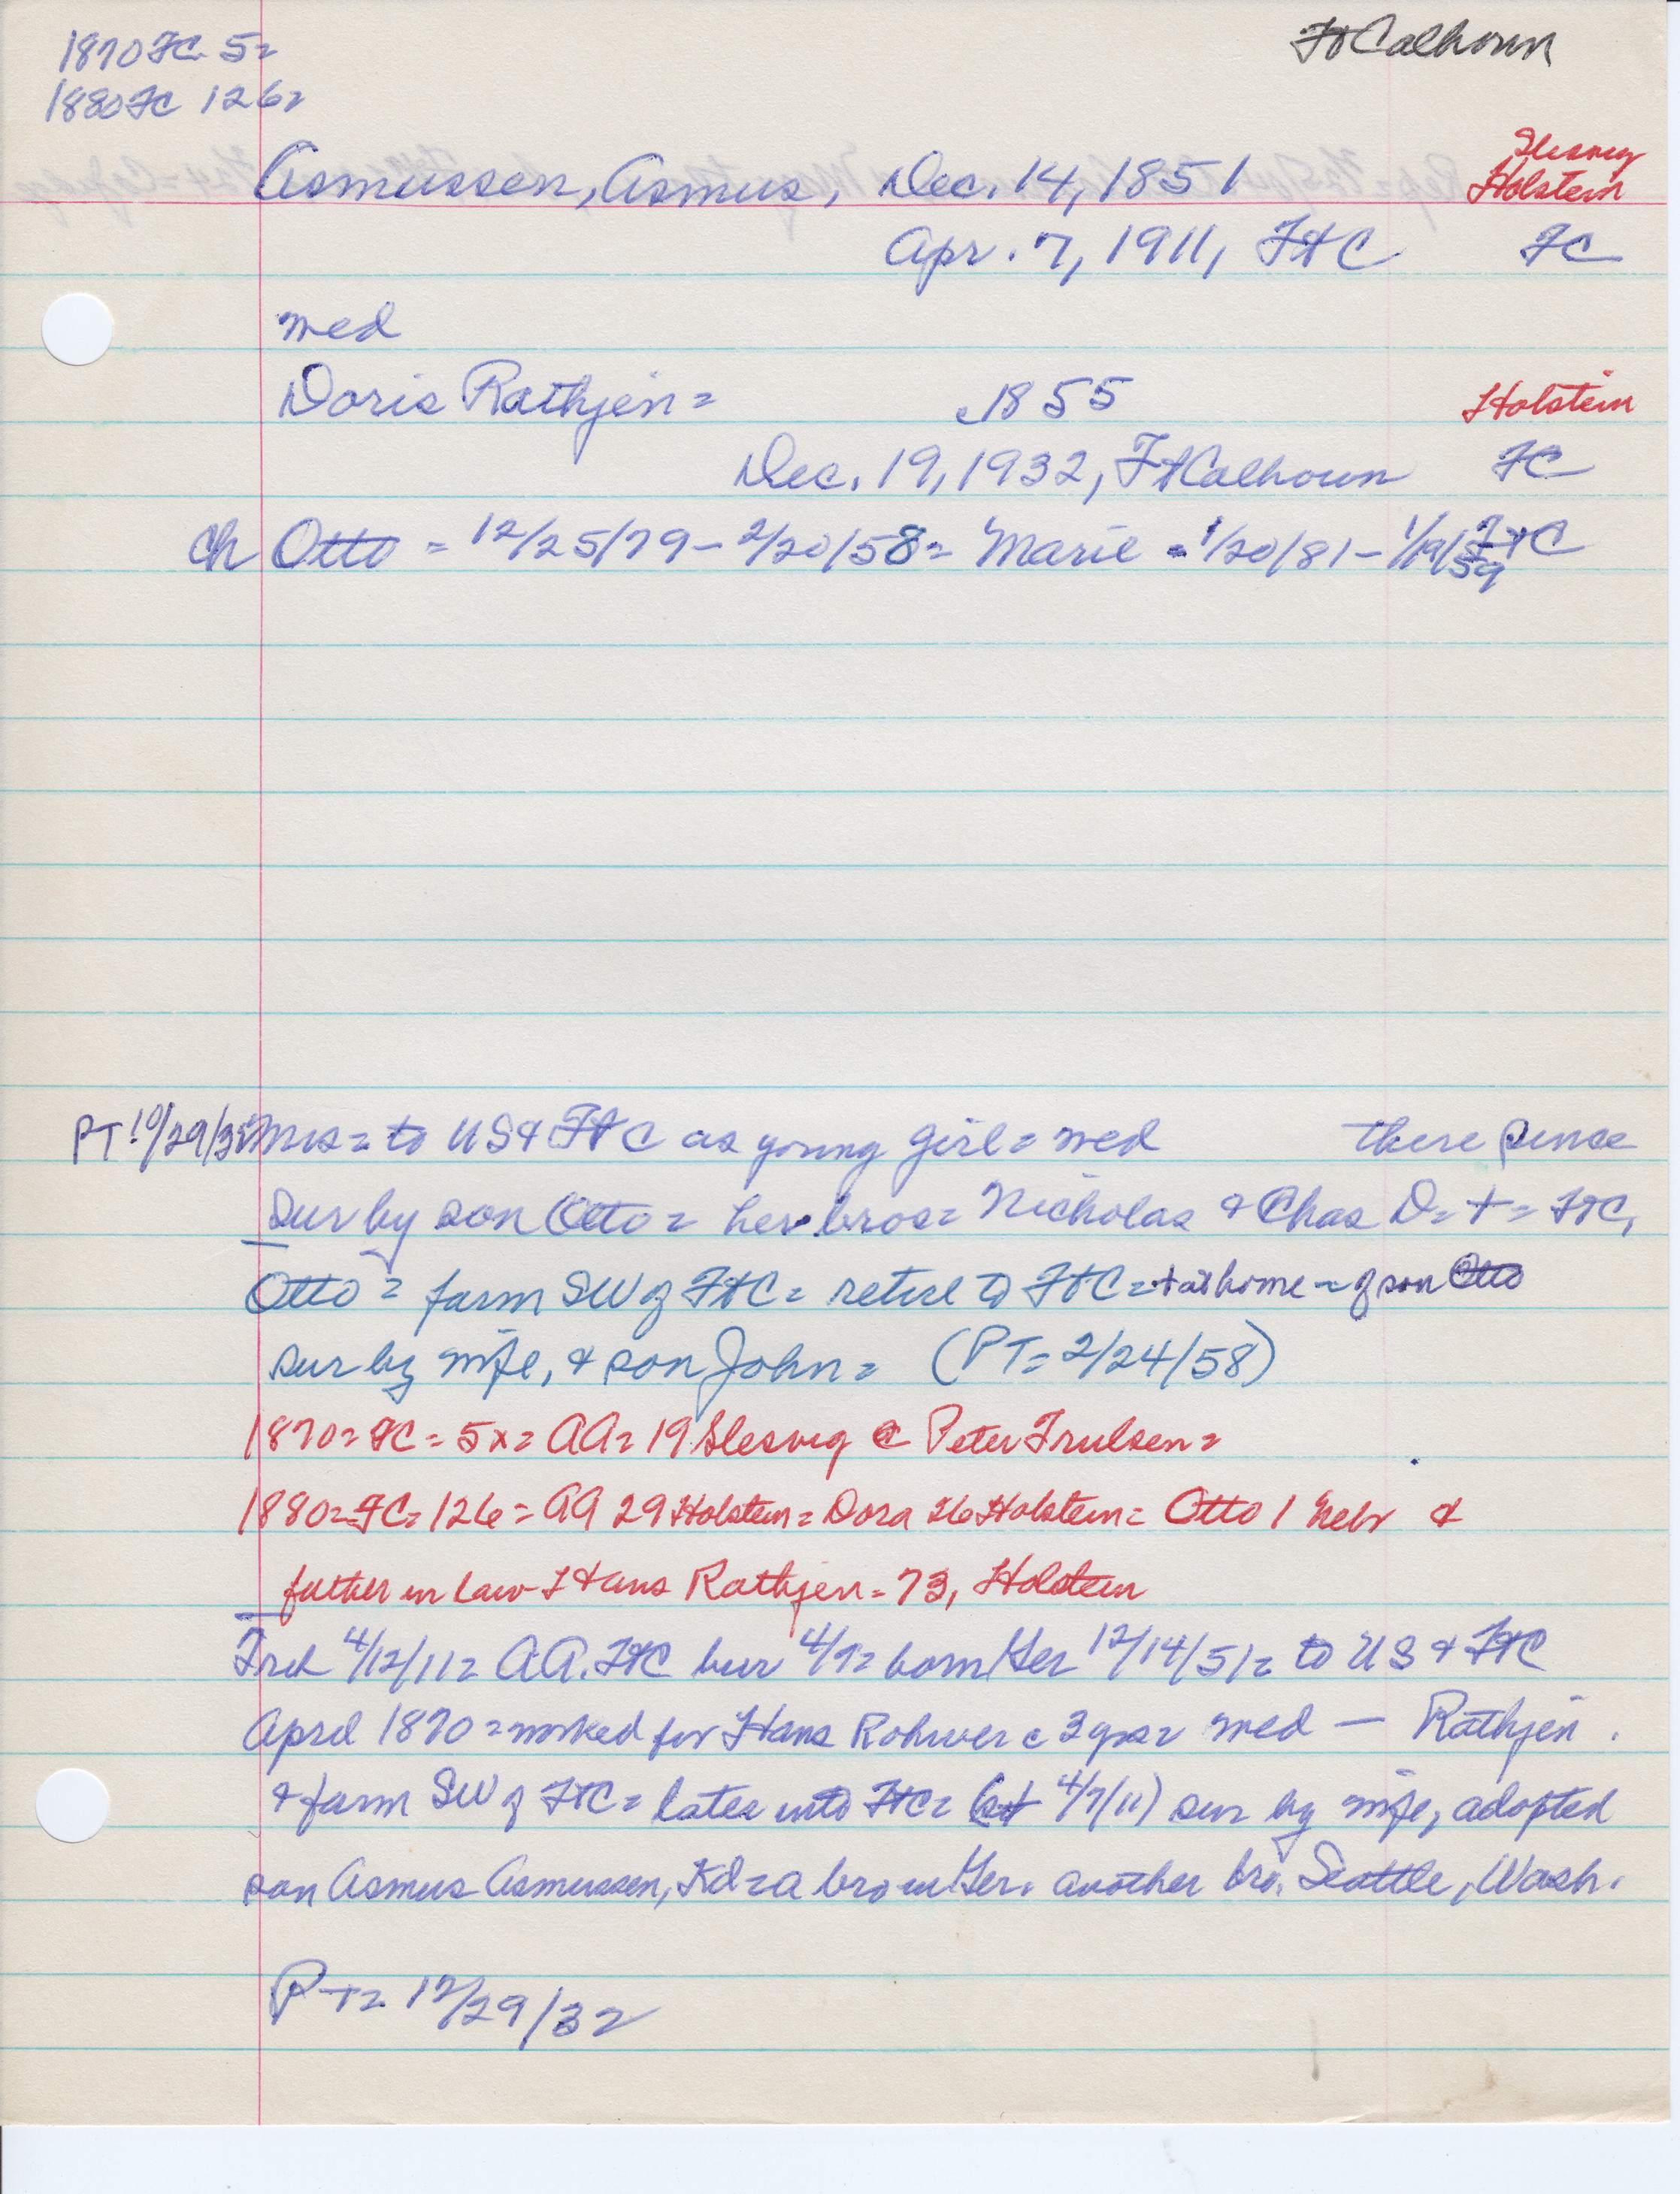 1870 FC 5=
Ft Calhoun
1880 FC 126=
Slesvig
Asmussen, Asmus, Dec. 14, 1851 Holstein
Apr. 7, 1911, FtC FC
med
Doris Rathjen = c1855 Holstein
Dec. 19, 1932, Ft Calhoun FC
Ch Otto = 12/25/79 - 2/20/58 = Marie = 1/20/81 - 1/19/59 FtC
PT Mrs = to US & FtC as young girl = med there since
Sur by son Otto = her bros = Nicholas & Chas D = + = FtC,
Otto = farm SW of FtC = retire to FtC = + at home = of son Otto
sur by wife, & son John = (PT = 2/24/58)
1870 = FC = 5x = AA = 19 Slesvig @ Peter Trulsen =
1880 = FC = 126 = AA 29 Holstein = Dora 26 Holstein = Otto 1 Nebr &
father in law Hans Rathjen = 73, Holstein
4/12/11 = AA. FtC bur 4/9 = born Ger 12/14/51 = to US & FtC
April 1870 = worked for Hans Rohwer c 3 yrs = med — Rathjen.
& farm SW of FtC = later into FtC = 4/7/11) sur by wife, adopted
son Asmus Asmussen, Kd = a bro in Ger. another bro. Seattle, Wash.
PT = 12/29/32